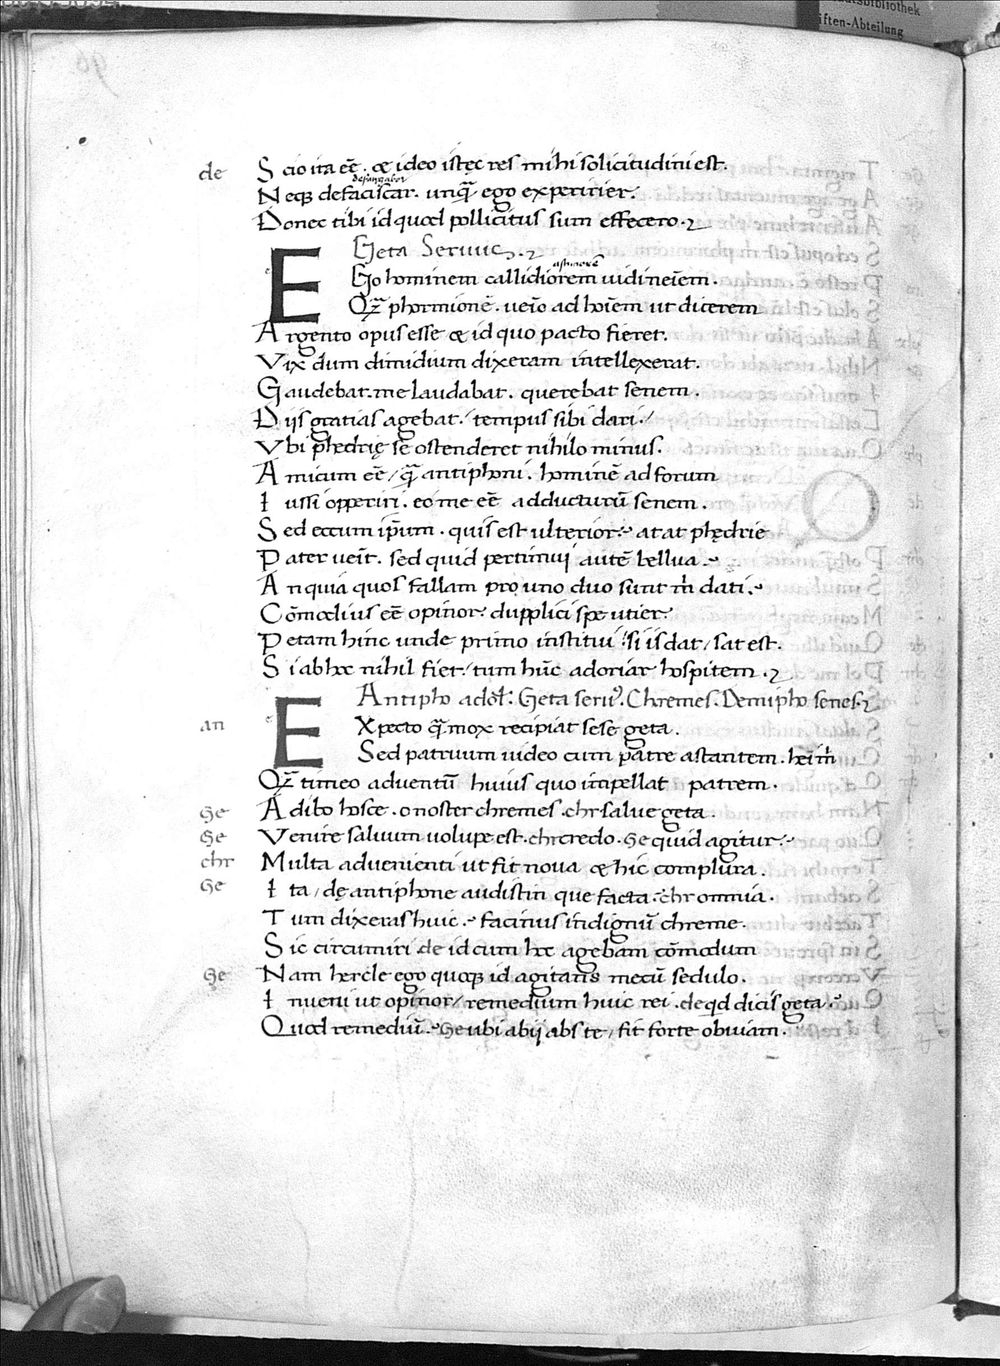 de Scio ita eē. & ideo istęc res mihi solicitudini est.
Neq; defaciscar. unq̄ ego experirier.
Donec tibi id quod pollicitus sum effecero.
Geta Seruus.
EGo hominem callidiorem uidi neīem.
Qz phormionē. ueīo ad hoīem ut dicerem
Argento opus esse & id quo pacto fieret.
Vix dum dimidium dixeram intellexerat.
Gaudebat. me laudabat. querebat senem.
Dijs gratias agebat. tempus sibi dari.
Vbi phedrię se ostenderet nihilo minus.
Amicum eē / q̄ antiphoni. hominē ad forum
Iussi opperiri. eo me eē adducturū senem.
Sed eccum ip̄um. quis est ulterior. at at phędrie
Pater ueīt. sed quid pertimui autē bellua.
An quia quos fallam pro uno duo sunt m̄ dati.
Cōmodius eē opinor dupplici spe utier.
Petam hinc unde primo institui. si is dat / sat est.
Si ab hoc nihil fiet / tum hūc adoriar hospitem.
Antipho adol. Geta seru9. Chremes. Demipho senes.
an EXpecto q̄ mox recipiat sese geta.
Sed patruum uideo cum patre astantem. hei m̄
Qz timeo aduentū huius quo impellat patrem.
Ge Adibo hosce. o noster chremes. chr salue geta.
Ge Venire saluum uolupe est. chr credo. Ge quid agitur.
chr Multa aduenienti ut fit noua & hic complura.
Ge Ita / dę antiphone audistin que facta. chr omnia.
Tum dixeras huic. facinus indignū chreme.
Sic circumiri de id cum hoc agebam cōmodum
Ge Nam hercle ego quoq; id agitans mecū sedulo.
Inueni ut opinor / remedium huic rei. de qd dicis geta.
Quod remediū. Ge ubi abij abs te / fit forte obuiam.